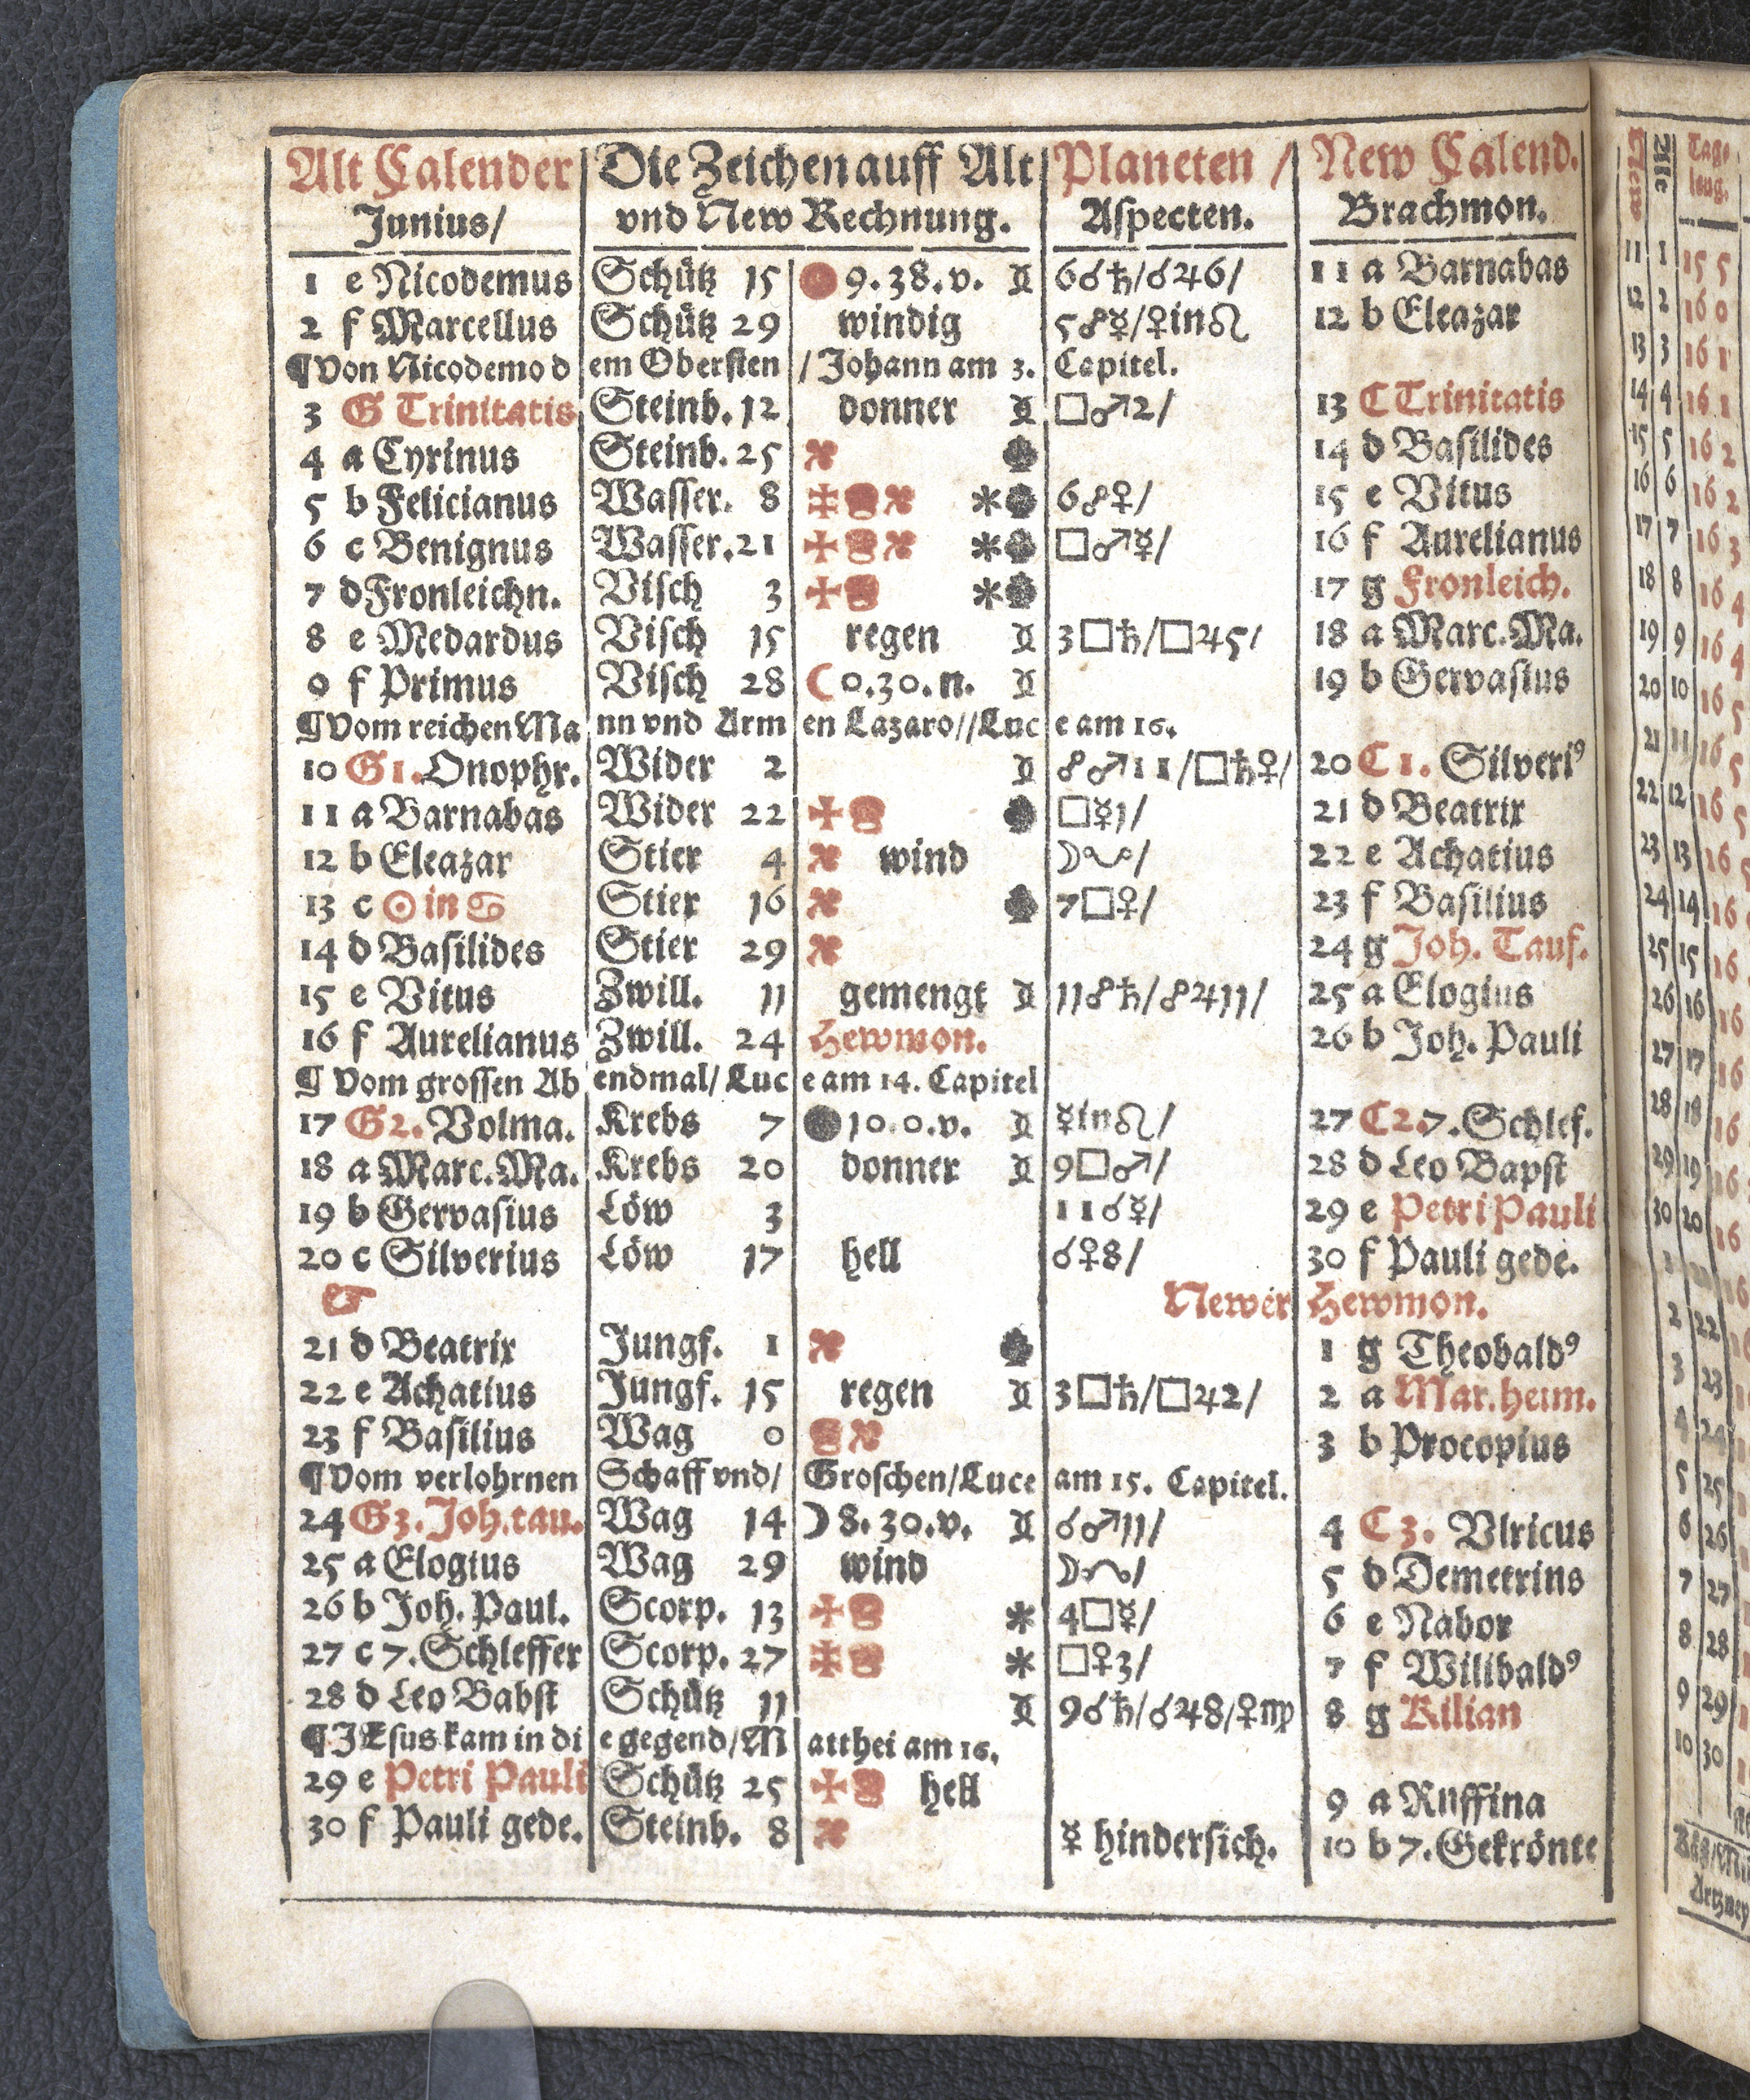 Alt Calender Die Zeichen auff Alt Planeten / New Calend.
Junius/ vnd New Rechnung. Aspecten. Brachmon.
1 e Nicodemus Schütz 15 9.38.v. ♊ 6☌♄/☌♃6/ 11 a Barnabas
2 f Marcellus Schütz 29 windig 5☍☿/♀in♌ 12 b Eleazar
¶Von Nicodemo dem Obersten/Johann am 3. Capitel.
3 G Trinitatis Steinb. 12 donner ♊ □♂2/ 13 C Trinitatis
4 a Cyrinus Steinb. 25 14 d Basilides
5 b Felicianus Wasser. 8 * 6☍♀/ 15 e Vitus
6 c Benignus Wasser. 21 * □♂☿/ 16 f Aurelianus
7 d Fronleichn. Visch 3 * 17 g Fronleich.
8 e Medardus Visch 15 regen ♊ 3□♄/□♃5/ 18 a Marc. Ma.
9 f Primus Visch 28 ☾0.30.n. ♊ 19 b Gervasius
¶Vom reichen Mann vnd Armen Lazaro//Luce am 16.
10 G1. Onophr. Wider 2 ♊ ☍♂11/□♄♀/ 20 C 1. Silveri9
11 a Barnabas Wider 22 □☿1/ 21 d Beatrix
12 b Eleazar Stier 4 wind 22 e Achatius
13 c ☉ in ♋ Stier 16 7□♀/ 23 f Basilius
14 d Basilides Stier 29 24 g Joh. Tauf.
15 e Vitus Zwill. 11 gemengt ♊ 11☍♄/☍♃11/ 25 a Elogius
16 f Aurelianus Zwill. 24 Hewmon. 26 b Joh. Pauli
¶ Vom grossen Abendmal/Luce am 14. Capitel
17 G2. Volma. Krebs 7 10.0.v. ♊ ☿in♌/ 27 C2. 7. Schlef.
18 a Marc. Ma. Krebs 20 donner ♊ 9□♂/ 28 d Leo Bapst
19 b Gervasius Löw 3 11☌☿/ 29 e Petri Pauli
20 c Silverius Löw 17 hell ☌♀8/ 30 f Pauli gede.
☞ Newer Hewmon.
21 d Beatrix Jungf. 1 1 g Theobald9
22 e Achatius Jungf. 15 regen ♊ 3□♄/□♃2/ 2 a Mar. heim.
23 f Basilius Wag 0 3 b Procopius
¶Vom verlohrnen Schaff vnd/ Groschen/Luce am 15. Capitel.
24 G3. Joh. tau. Wag 14 ☽8.30.v. ♊ ☌♂11/ 4 C 3. Vlricus
25 a Elogius Wag 29 wind 5 d Demetrins
26 b Joh. Paul. Scorp. 13 * 4□☿/ 6 e Nabor
27 c 7. Schleffer Scorp. 27 * □♀3/ 7 f Wilibald9
28 d Leo Babst Schütz 11 ♊ 9☌♄/☌♃8/♀♍ 8 g Kilian
¶JEsus kam in die gegend/Matthei am 16.
29 e Petri Pauli Schütz 25 hell 9 a Ruffina
30 f Pauli gede. Steinb. 8 ☿ hindersich. 10 b 7. Gekrönte
New Alt Tags leng.
11 1 15 5
12 2 16 0
13 3 16 1
14 4 16 1
15 5 16 2
16 6 16 2
17 7 16 3
18 8 16 4
19 9 16 4
20 10 16 5
21 11 16 5
22 12 16 5
23 13 16 5
24 14 16
25 15 16
26 16 16
27 17 16
28 18 16
29 19 16
30 20 16
1 16
2 22
3 23
4 24
5 25
6 26
7 27
8 28
9 29
10 30